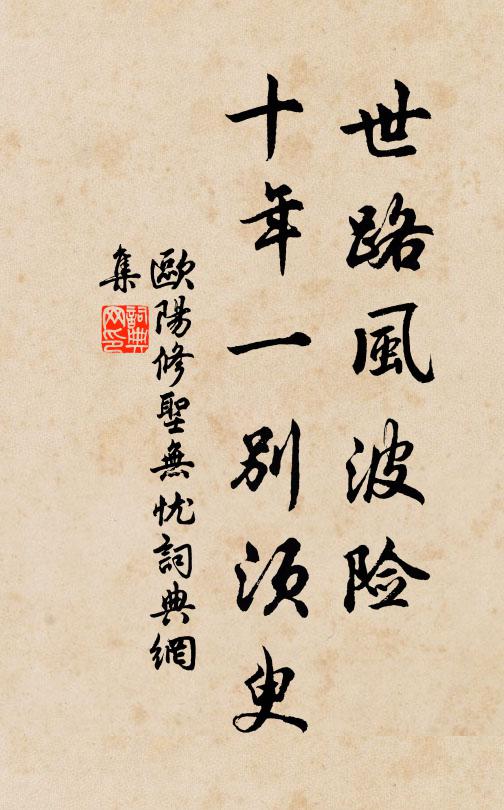 世路風波险
十年一别须臾
歐陽修聖無忧詞典網
集
詞典网印